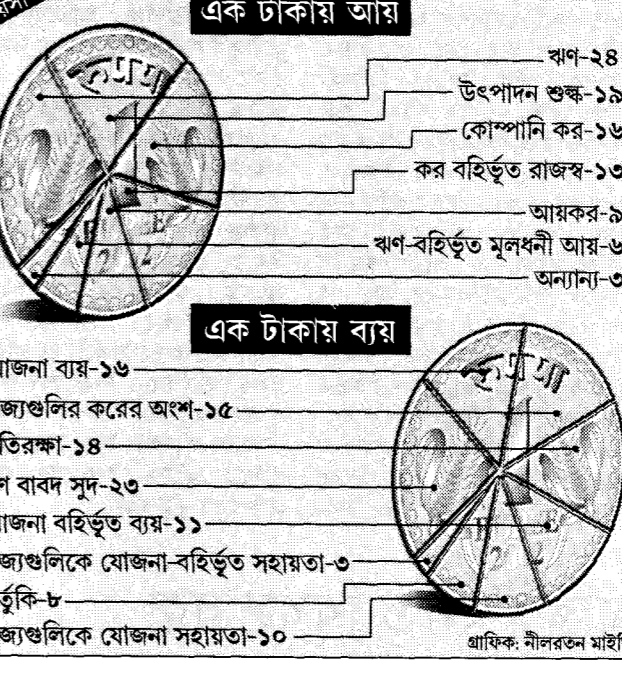 এক টাকায় আয়
रुपया
ঋণ-২৪
উৎপাদন শুল্ক-১৯
কোম্পানি কর-১৬
কর বহির্ভূত রাজস্ব-১৩
আয়কর-৯
ঋণ-বহির্ভূত মূলধনী আয়-৬
অন্যান্য-৩
এক টাকায় ব্যয়
रुपया
াজনা ব্যয়-১৬
জ্যগুলির করের অংশ-১৫
তিরক্ষা-১৪
ণ বাবদ সুদ-২৩
াজনা বহির্ভূত ব্যয়-১১
জ্যগুলিকে যোজনা-বহির্ভূত সহায়তা-৩
র্তুকি-৮
জ্যগুলিকে যোজনা সহায়তা-১০
গ্রাফিক: নীলরতন মাইতি